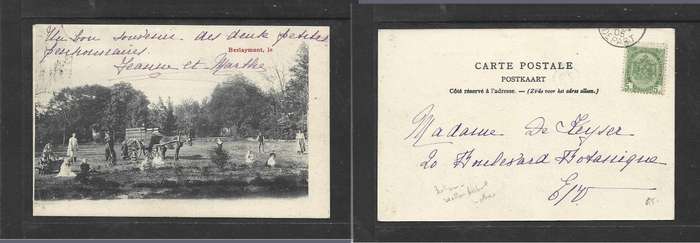 Un bon souvenir des deux petites
pensionnaires.
Jeanne et Marthe
Berlaymont, le
CARTE POSTALE
POSTKAART
Côté réservé à l'adresse. — (Zijde voor het adres alleen.)
Madame De Keyser
20 Boulevard Botanique
E/V
08
DEPART
5 5